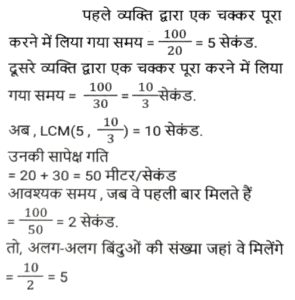 पहले व्यक्ति द्वारा एक चक्कर पूरा
करने में लिया गया समय = 100/20 = 5 सेकंड.
दूसरे व्यक्ति द्वारा एक चक्कर पूरा करने में लिया
गया समय = 100/30 = 10/3 सेकंड.
अब , LCM(5 , 10/3) = 10 सेकंड.
उनकी सापेक्ष गति
= 20 + 30 = 50 मीटर/सेकंड
आवश्यक समय , जब वे पहली बार मिलते हैं
= 100/50 = 2 सेकंड.
तो, अलग-अलग बिंदुओं की संख्या जहां वे मिलेंगे
= 10/2 = 5